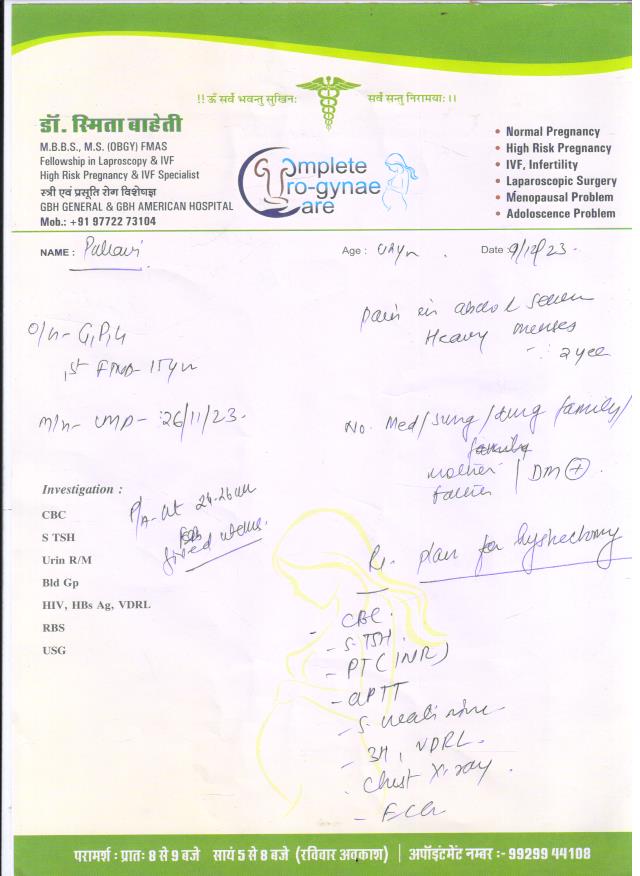 !! ॐ सर्वे भवन्तु सुखिनः सर्वे सन्तु निरामयाः ।।
डॉ. स्मिता बाहेती
M.B.B.S., M.S. (OBGY) FMAS
Fellowship in Laproscopy & IVF
High Risk Pregnancy & IVF Specialist
स्त्री एवं प्रसूति रोग विशेषज्ञ
GBH GENERAL & GBH AMERICAN HOSPITAL
Mob.: +91 97722 73104
Complete
Uro-gynae
Care
• Normal Pregnancy
• High Risk Pregnancy
• IVF, Infertility
• Laparoscopic Surgery
• Menopausal Problem
• Adoloscence Problem
NAME : Age : Date : 9/12/23
Pain in abdo
Heavy menses
O/H- G1P1L1
1st FTND- 15yr
M/H- LMP- 26/11/23.
No. Med/Surg/drug family/
mother / DM +
father
Investigation :
CBC
S TSH
Urin R/M
Bld Gp
HIV, HBs Ag, VDRL
RBS
USG
P/A- ut 24-26
fixed
Rx. plan for
- CBC.
- S. TSH.
- PT (INR)
- aPTT
- 3H, VDRL.
- Chest X-ray.
- ECG
परामर्श : प्रातः 8 से 9 बजे सायं 5 से 8 बजे (रविवार अवकाश) | अपॉइंटमेंट नम्बर :- 99299 44108